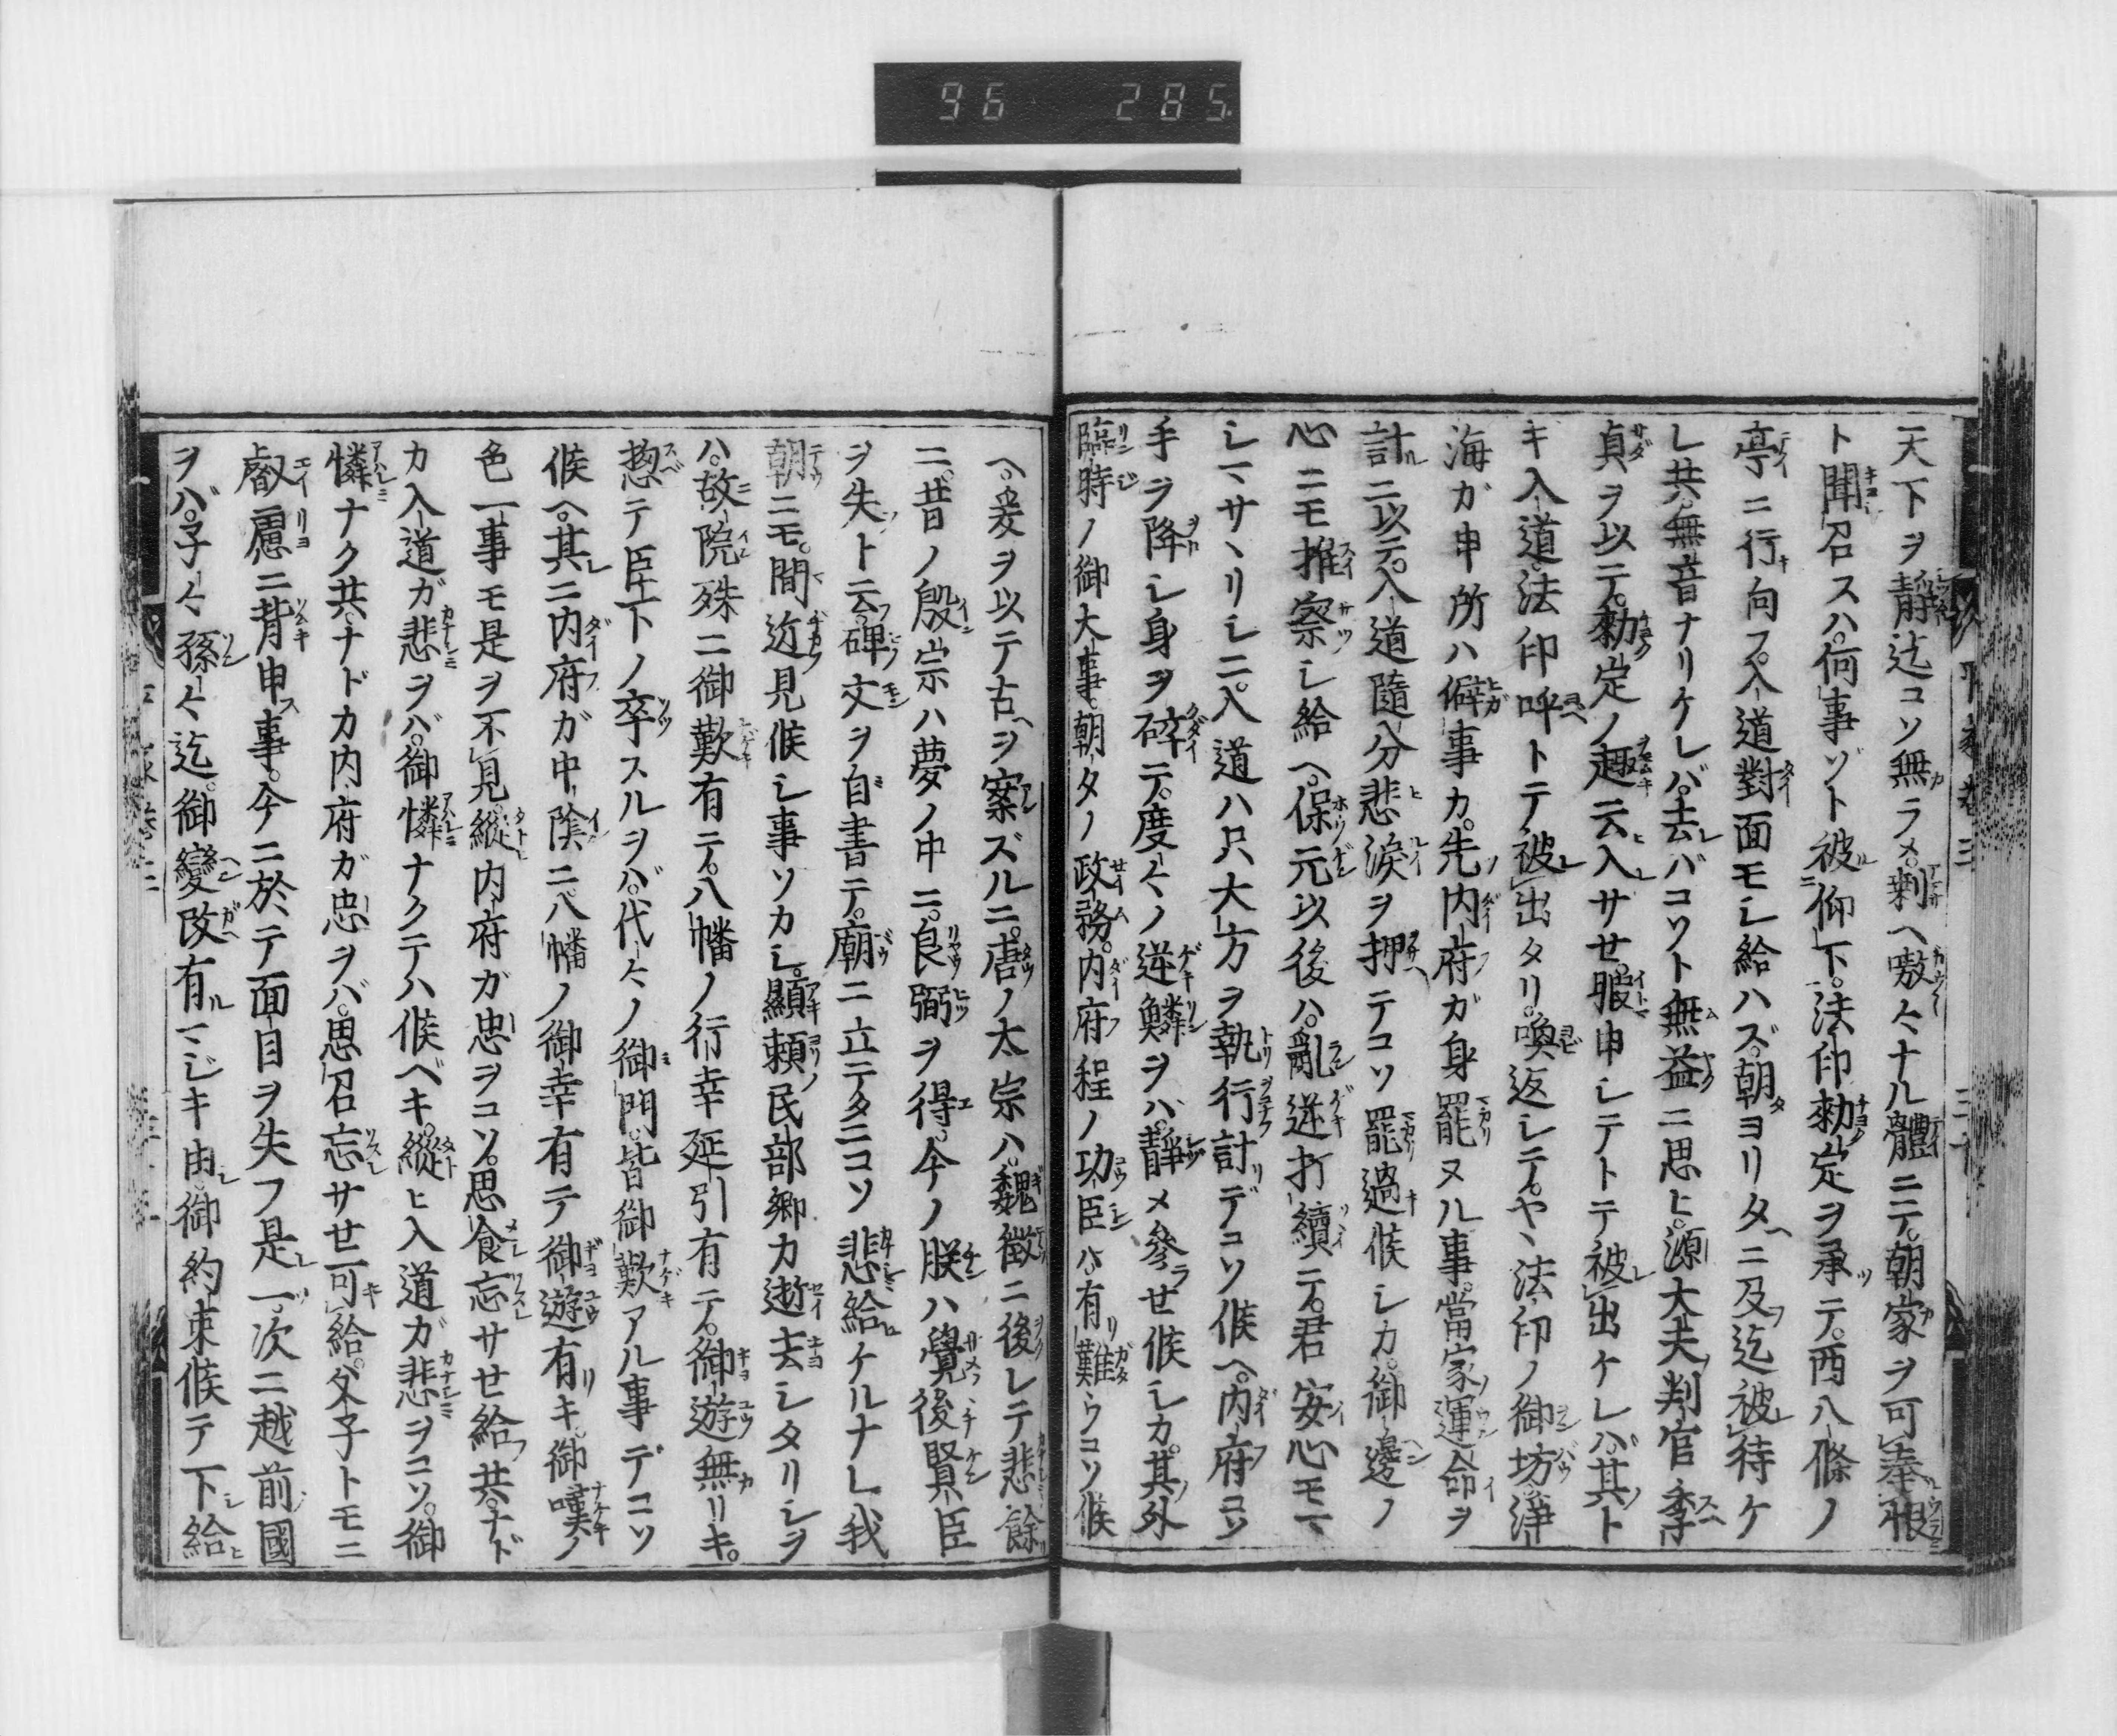 96 285
天下ヲ靜迄コソ無ラメ。剰ヘ嗷々ナル體ニテ。朝家ヲ可奉恨
ト聞召スハ。何事ゾト被仰下。法印勅定ヲ承テ。西八條ノ
亭ニ行向フ。入道對面モシ給ハズ。朝ヨリタニ及迄被待ケ
レ共。無音ナリケレバ。去バコソト無益ニ思ヒ。源大夫判官季
貞ヲ以テ。勅定ノ趣云入サせ。暇申シテトテ被出ケレバ。其ト
キ入道。法印呼トテ被出タリ。喚返シテ。ヤヽ法印ノ御坊。淨
海ガ申所ハ僻事カ。先内府ガ身罷ヌル事。當家運命ヲ
計ニ以テ。入道隨分悲涙ヲ押テコソ罷過候シカ。御邊ノ
心ニモ推察シ給ヘ。保元以後ハ。亂逆打續テ。君安心モマ
シマサヽリシニ。入道ハ只大方ヲ執行計デコソ候ヘ。内府コソ
手ヲ降シ身ヲ碎テ。度々ノ逆鱗ヲハ。靜メ參せ候シカ。其外
臨時ノ御大事。朝タノ政務。内府程ノ功臣ハ有難ウコソ候
ヘ。爰ヲ以テ古ヲ案ズルニ。唐ノ太宗ハ。魏徴ニ後レテ悲餘
ニ。昔ノ殷宗ハ夢ノ中ニ。良弼ヲ得。今ノ朕ハ覺後賢臣
ヲ失ト云碑文ヲ自書テ。廟ニ立テタニコソ悲給ケルナレ我
朝ニモ。間近見候シ事ソカシ。顯頼民部卿カ逝去シタリシヲ
ハ。故院殊ニ御歎有テ。八幡ノ行幸延引有テ。御遊無リキ。
惣テ臣下ノ卒スルヲバ。代々ノ御門。皆御歎アル事デコソ
候ヘ。其ニ内府ガ中陰ニ。八幡ノ御幸有テ御遊有キ。御嘆ノ
色一事モ是ヲ不見。縦内府ガ忠ヲコソ。思食忘サせ給共。ナド
カ入道ガ悲ヲバ。御憐ナクテハ候ベキ。縱ヒ入道ガ悲ヲコソ。御
憐ナク共。ナドカ内府ガ忠ヲバ。思召忘サせ可給。父子トモニ
叡慮ニ背申事。今ニ於テ面目ヲ失フ是一。次ニ越前國
ヲバ。子々孫々迄。御變改有マジキ由。御約束候テ下給